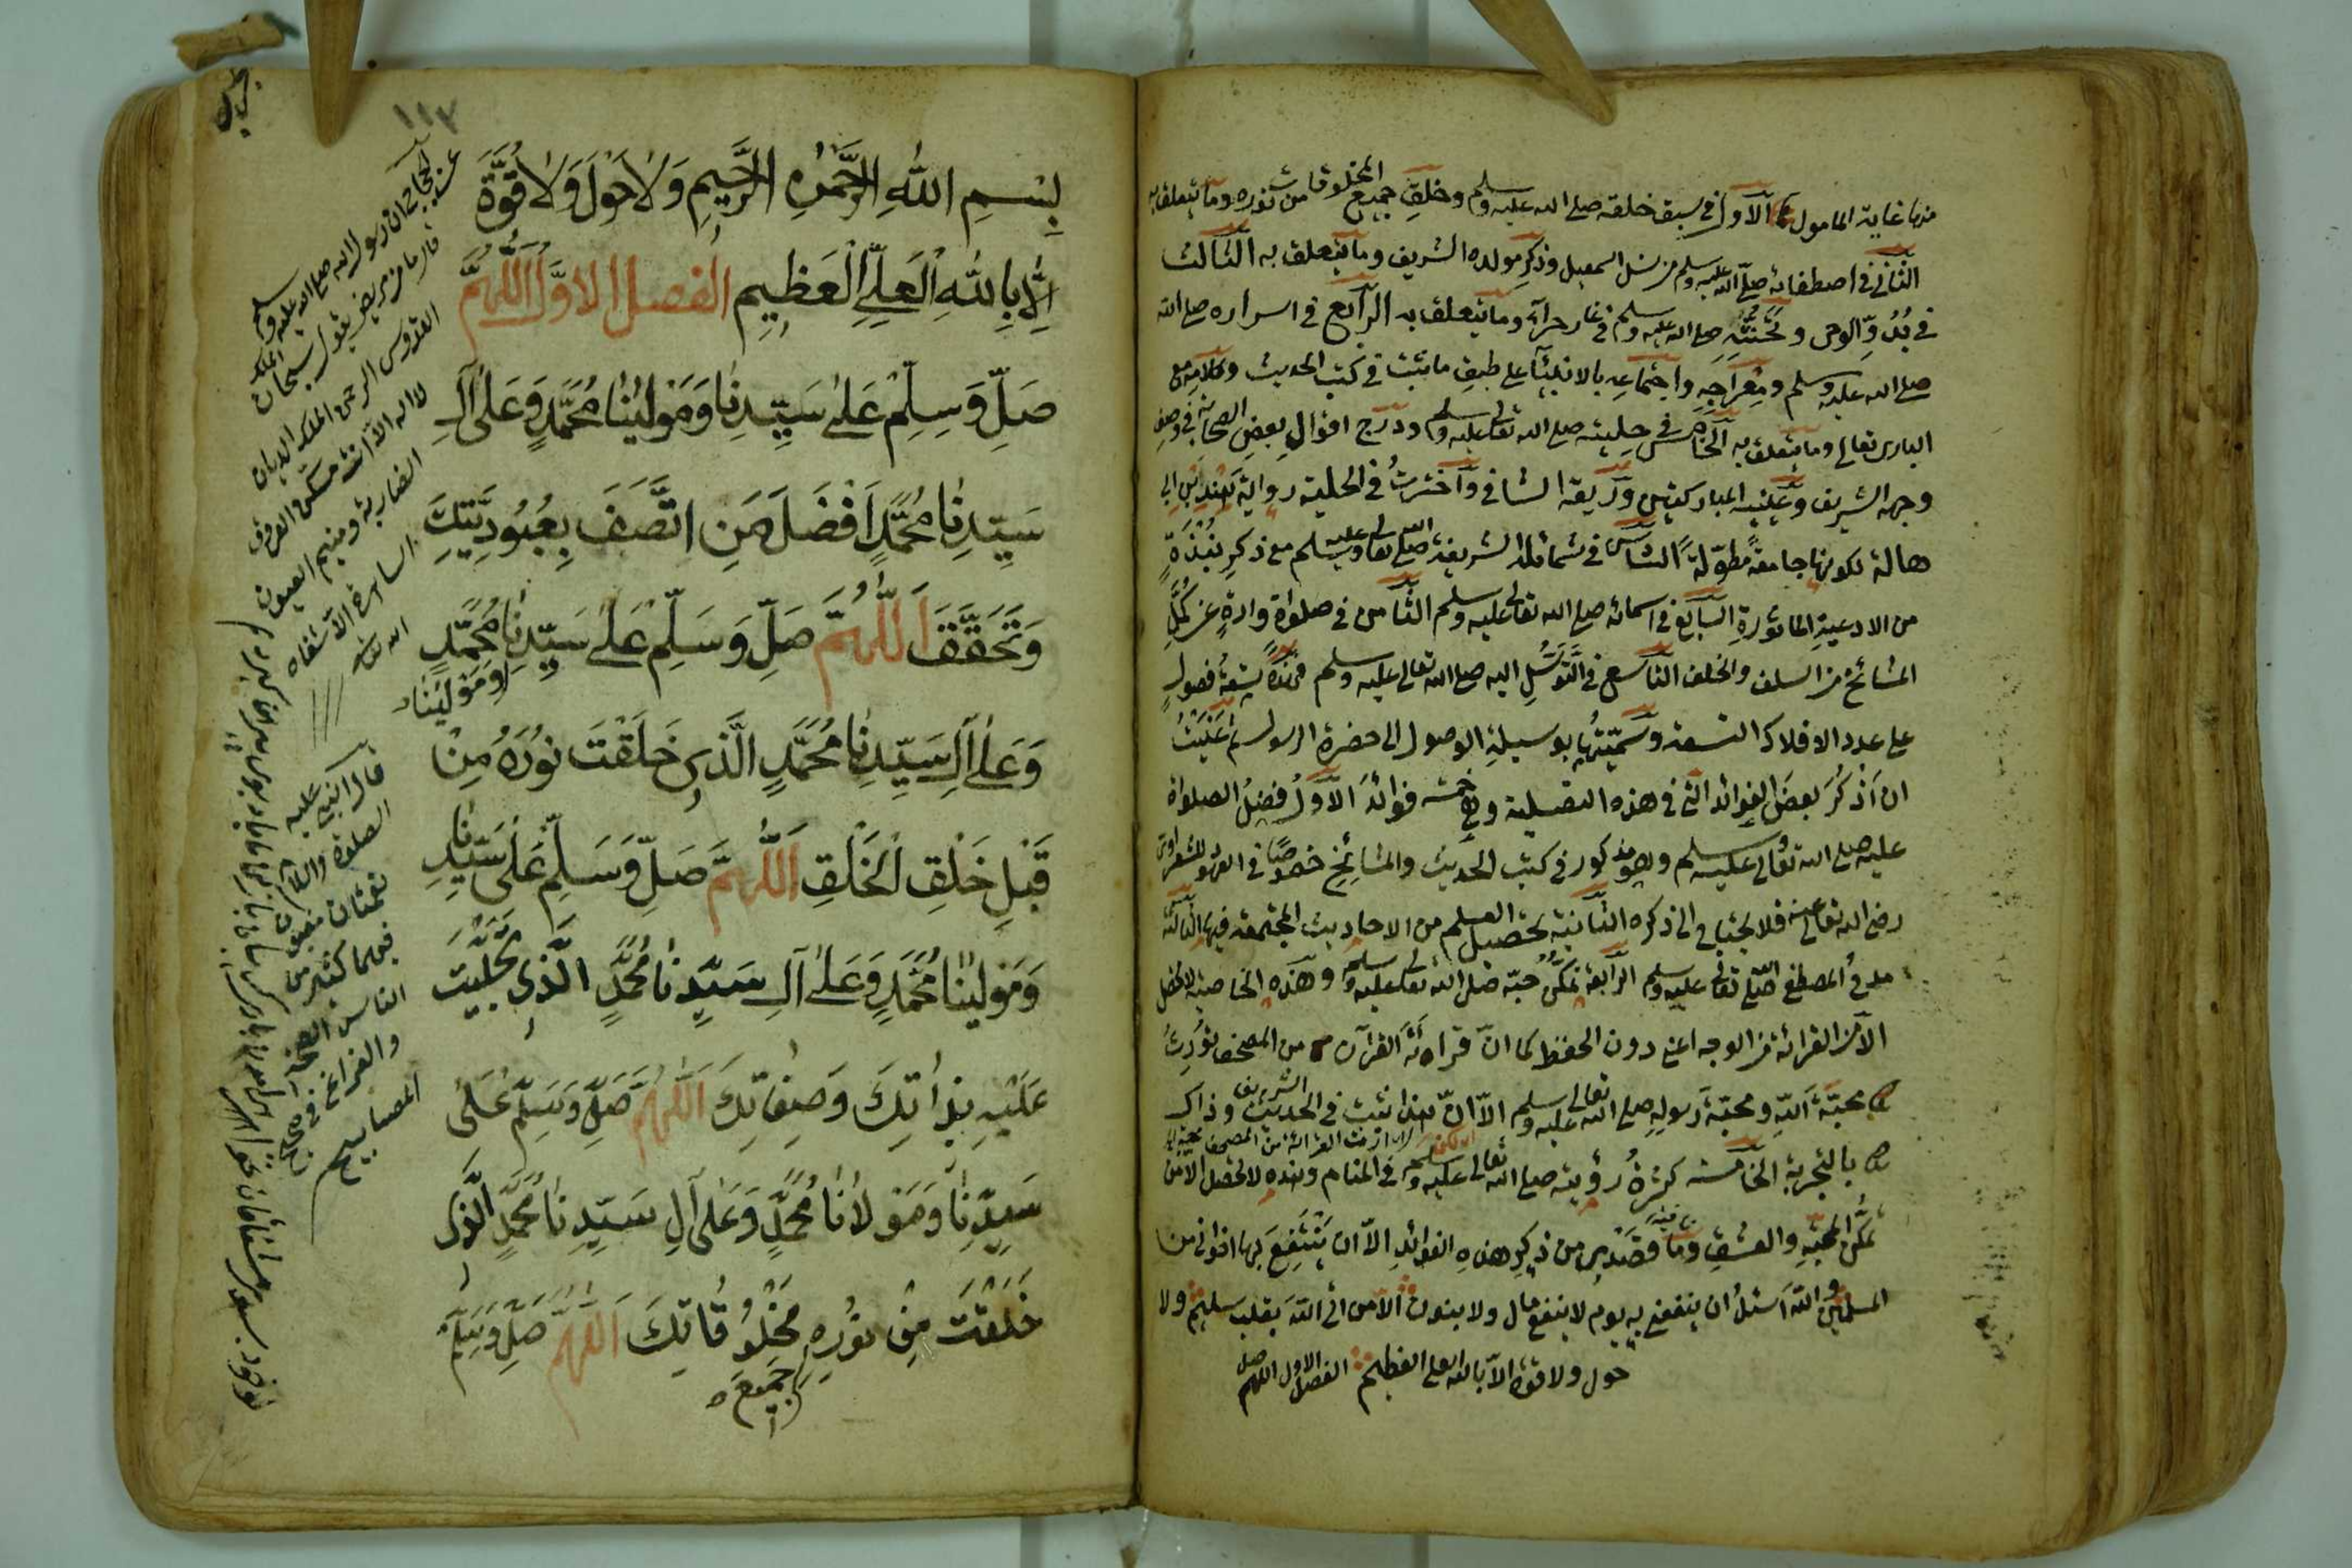 منها غاية المامول الاول في سبق خلقه صلى الله عليه وسلم وخلق جميع المخلوقات من نوره وما يتعلق به
الثاني في اصطفائه صلى الله عليه وسلم من نسل اسمعيل وذكر مولده الشريف وما يتعلق به الثالث
في بُدُوِّ الوحى وتحنثه صلى الله عليه وسلم في غار حرآء وما يتعلق به الرابع في اسراره صلى الله
صلى الله عليه وسلم ومعراجه واجتماعه بالانبياء على طبق ما ثبت في كتب الحديث وكلامه مع
البارى تعالى وما يتعلق به الخامس في حليته صلى الله تعالى عليه وسلم ودرج اقوال بعض الصحابة في وصف
وجهه الشريف وعينيه المباركتين وريقه الشافي واخترت في الحلية رواية هند بن ابى
هالة لكونها جامعة مطوّلة السادس في شمائله الشريفة صلى الله تعالى عليه وسلم مع ذكر نُبْذَةٍ
من الادعية الماثورة السابع في اسمائه صلى الله تعالى عليه وسلم الثامن في صلوات واردة عن كُمَّلِ
المشائخ من السلف والخلف التاسع في التَّوَسُّلِ اليه صلى الله تعالى عليه وسلم فهذه تسعة فصول
على عدد الافلاك التسعة وسمّيتها بوسيلة الوصول الى حضرة الرسول
ان اذكر بعض الفوائد التى في هذه التصلية وهي خمسة فوائد الاول فضل الصلواة
عليه صلى الله تعالى عليه وسلم وهو مذكور في كتب الحديث والمشائخ خصوصًا في العهود للشعراوى
رضى الله تعالى عنه فلا يحتاج الى ذكره الثانية تحصيل العلم من الاحاديث المجتمعة فيها الثالثة
مدح المصطفى صلى الله تعالى عليه وسلم الرابعة تمكّن حبّه صلى الله تعالى عليه وسلم وهذه الخاصية لا تحصل
الا من القرائة من الوجه اعنى دون الحفظ كما انّ قراءة القرآن من المصحف تورث
محبّة الله ومحبّة رسوله صلى الله تعالى عليه وسلم الا انّ هذا ثبت في الحديث الشريف وذاك
بالتجربة الخامسة كثرة رؤيته صلى الله تعالى عليه وسلم في المنام وهذه لا تحصل الا من
تمكّن المحبّة والعشق وما قصدى من ذكر هذه الفوائد الا ان ينتفع بها اخواني من
المسلمين والله اسئل ان ينفعنى به يوم لا ينفع مال ولا بنون الا من اتى الله بقلب سليم ولا
حول ولا قوة الا بالله العلى العظيم الفصل الاول اللهم صل
١١٣
بِسْمِ اللهِ الرَّحْمٰنِ الرَّحِيمِ وَلَا حَوْلَ وَلَا قُوَّةَ
اِلَّا بِاللهِ الْعَلِيِّ الْعَظِيمِ الفصل الاوّل اَللّٰهُمَّ
صَلِّ وَسَلِّمْ عَلٰى سَيِّدِنَا وَمَوْلٰينَا مُحَمَّدٍ وَعَلٰى آلِ
سَيِّدِنَا مُحَمَّدٍ اَفْضَلَ مَنِ اتَّصَفَ بِعُبُودِيَّتِكَ
وَتَحَقَّقَ اَللّٰهُمَّ صَلِّ وَسَلِّمْ عَلٰى سَيِّدِنَا وَمَوْلٰينَا مُحَمَّدٍ
وَعَلٰى آلِ سَيِّدِنَا مُحَمَّدٍ الَّذِى خَلَقْتَ نُورَهُ مِنْ
قَبْلِ خَلْقِ الْخَلْقِ اَللّٰهُمَّ صَلِّ وَسَلِّمْ عَلٰى سَيِّدِنَا
وَمَوْلٰينَا مُحَمَّدٍ وَعَلٰى آلِ سَيِّدِنَا مُحَمَّدٍ الَّذِى تَجَلَّيْتَ
عَلَيْهِ بِذَاتِكَ وَصِفَاتِكَ اَللّٰهُمَّ صَلِّ وَسَلِّمْ عَلٰى
سَيِّدِنَا وَمَوْلَانَا مُحَمَّدٍ وَعَلٰى آلِ سَيِّدِنَا مُحَمَّدٍ الَّذِى
خَلَقْتَ مِنْ نُورِهِ جَمِيعَ مَخْلُوقَاتِكَ اَللّٰهُمَّ صَلِّ وَسَلِّمْ
ان رسول الله صلى الله عليه وسلم
قال ما من مريض يقول سبحان الملك
القدوس الرحمن الملك الديان
لا اله الا انت مسكن العروق
الضاربة ومنيم العيون
الساهرة الا شفاه
الله تعالى
قال النبي عليه
الصلوة والسلام
نعمتان مغبون
فيهما كثير من
الناس الصحة
والفراغ في
المصابيح